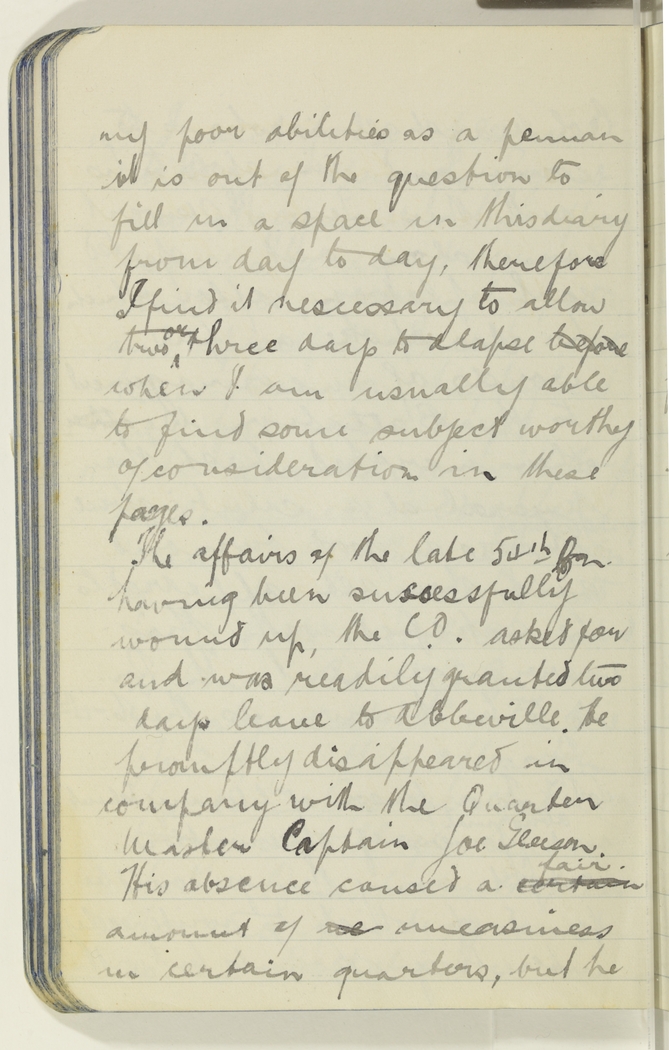 my poor abilities as a penman
it is out of the question to
fill in a space in this diary
from day to day, therefore
I find it nescessary to allow
two or three days to elapse before
when I am usually able
to find some subject worthy
of consideration in these
pages.
The affairs of the late 54th Bn.
having been successfully
wound up, the C.O. asked for
and was readily granted two
days leave to Abbeville. He
promptly disappeared in
company with the Quarter
Master Captain Joe Gleeson.
His absence caused a certain fair
amount of re uneasiness
in certain quarters, but he